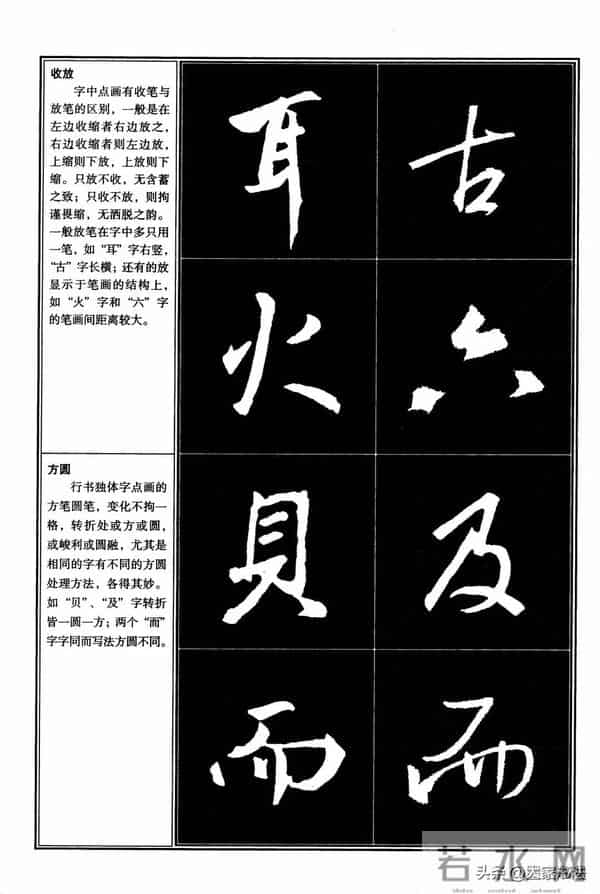 收放
字中点画有收笔与
放笔的区别，一般是在
左边收缩者右边放之，
右边收缩者则左边放，
上缩则下放，上放则下
缩。只放不收，无含蓄
之致；只收不放，则拘
谨畏缩，无洒脱之韵。
一般放笔在字中多只用
一笔，如“耳”字右竖，
“古”字长横；还有的放
显示于笔画的结构上，
如“火”字和“六”字
的笔画间距离较大。
耳 古
火 六
方圆
行书独体字点画的
方笔圆笔，变化不拘一
格，转折处或方或圆，
或峻利或圆融，尤其是
相同的字有不同的方圆
处理方法，各得其妙。
如“贝”、“及”字转折
皆一圆一方；两个“而”
字字同而写法方圆不同。
貝 及
而 而
若水网
头条@